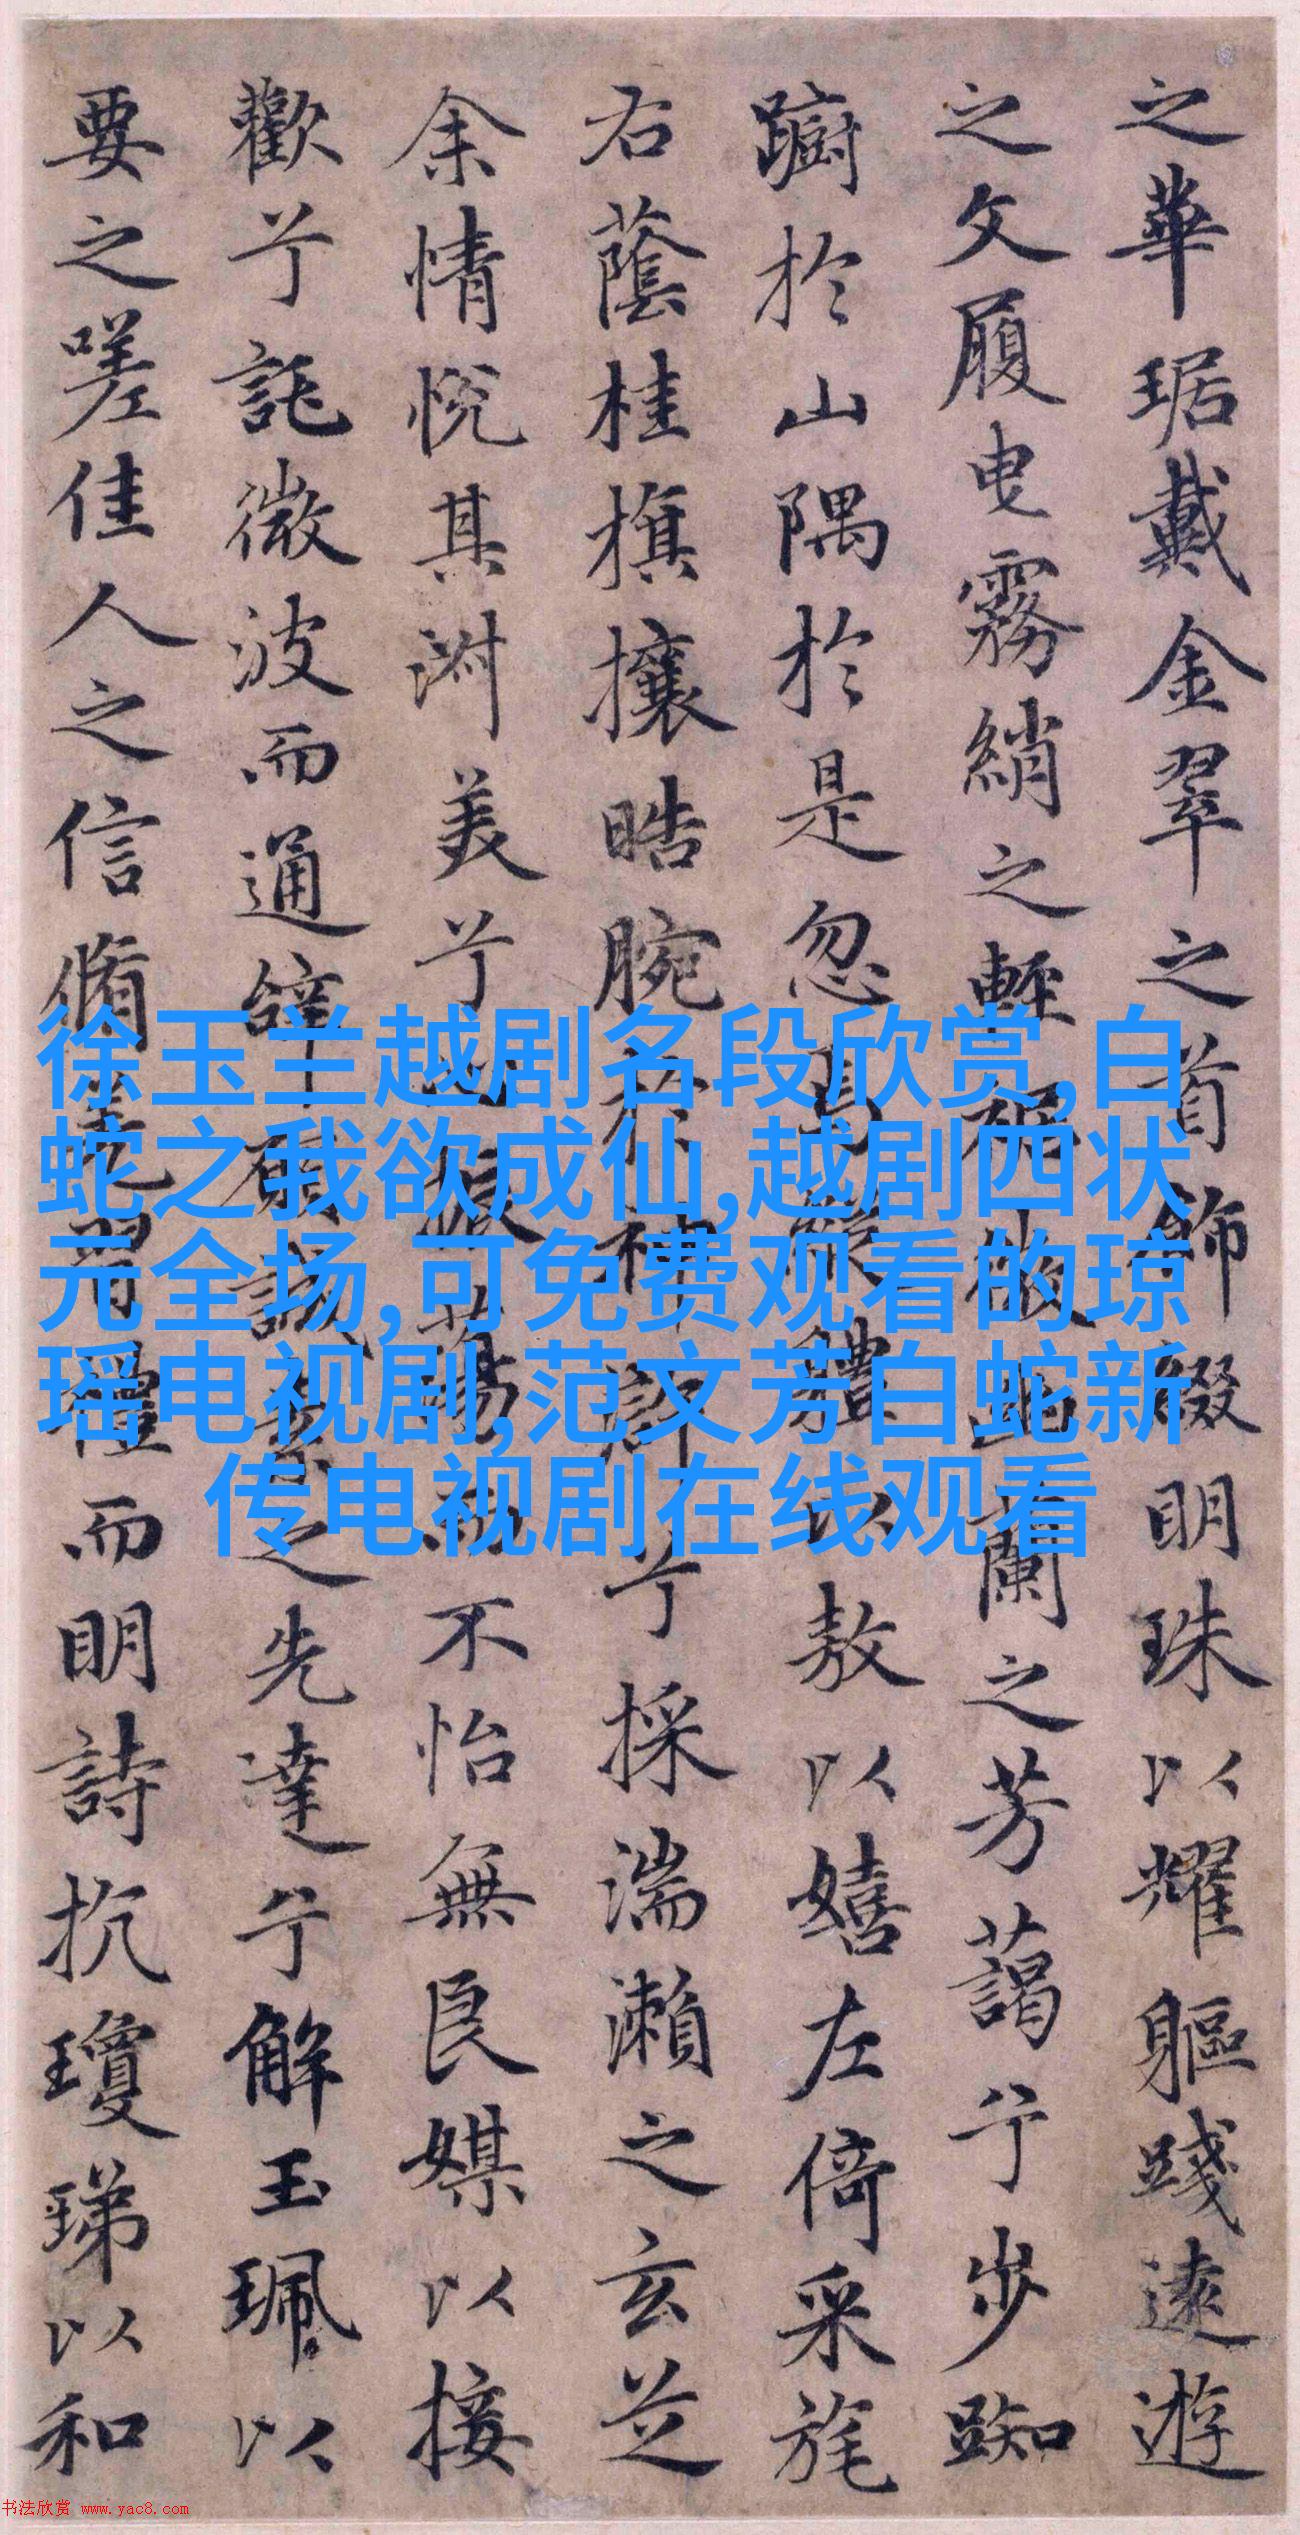 之華琚戴金翠之首飾綴明珠以耀軀踐遠遊
之文履曳霧綃之輕裾微幽蘭之芳藹兮步踟
躕於山隅於是忽焉縱體以敖以嬉左倚采旄
右蔭桂旗攘皓腕於神滸兮採湍瀨之玄芝
余情悅其淑美兮心振蕩而不怡無良媒以接
歡兮託微波而通辭願誠素之先達兮解玉珮以
要之嗟佳人之信脩羌習禮而明詩抗瓊珶以和
徐玉兰越剧名段欣赏,白
蛇之我欲成仙,越剧四状
元全场,可免费观看的琼
瑶电视剧,范文芳白蛇新
传电视剧在线观看
书法欣赏 www.yac8.com